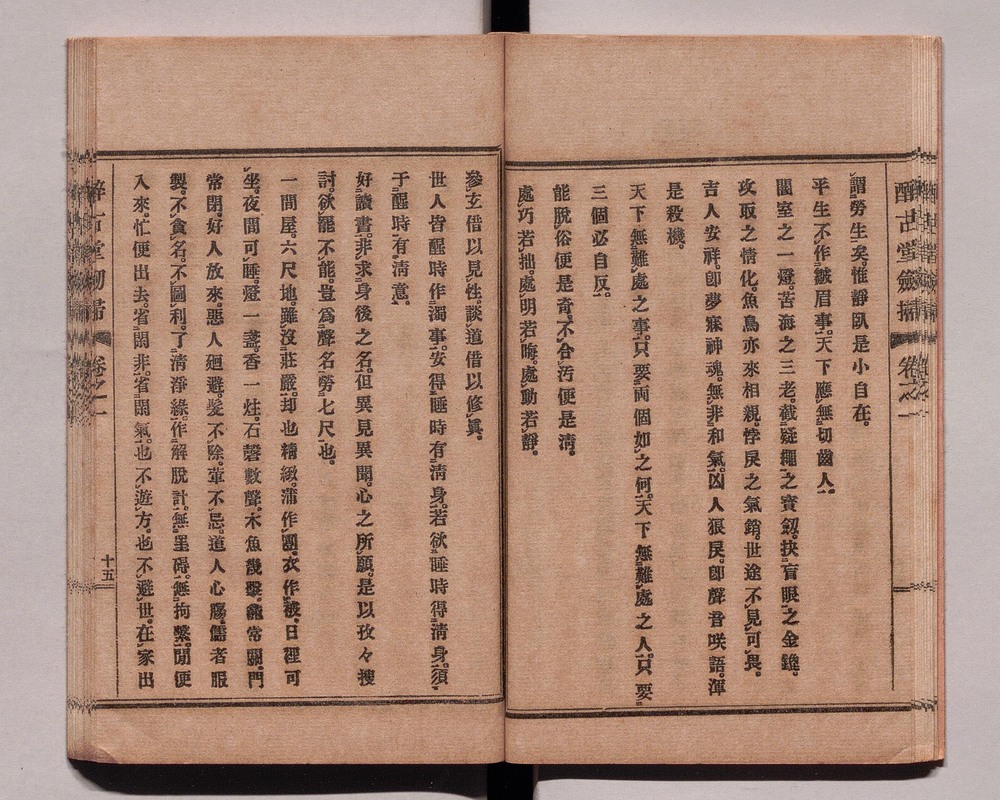 謂勞生矣。惟靜臥是小自在。
平生不作皺眉事。天下應無切齒人。
闇室之一燈。苦海之三老。截疑網之寶劒。抉盲眼之金鎞。
攻取之情化。魚鳥亦來相親。悖戾之氣銷。世途不見可畏。
吉人安祥。卽夢寐神魂。無非和氣。凶人狠戾。卽聲音咲語。渾
是殺機。
天下無難處之事。只要兩個如之何。天下無難處之人。只要
三個必自反。
能脫俗便是奇。不合汚便是淸。
處巧若拙。處明若晦。處動若靜。
參玄借以見性。談道借以修眞。
世人皆醒時作濁事。安得睡時有淸身。若欲睡時得淸身。須
于醒時有淸意。
好讀書。非求身後之名。但異見異聞。心之所願。是以孜々搜
討。欲罷不能。豈爲聲名勞七尺也。
一間屋。六尺地。雖沒莊嚴。却也精緻。蒲作團。衣作被。日裡可
坐。夜間可睡。燈一盞。香一炷。石磬數聲。木魚幾擊。龕常關。門
常閉。好人放來。惡人廻避。髮不除。葷不忌。道人心膓。儒者服
製。不貪名。不圖利。了淸淨緣。作解脫計。無罣碍。無拘繫。閒便
入來。忙便出去。省閑非。省閑氣。也不遊方。也不避世。在家出
醉古堂劒掃
卷之一
十五